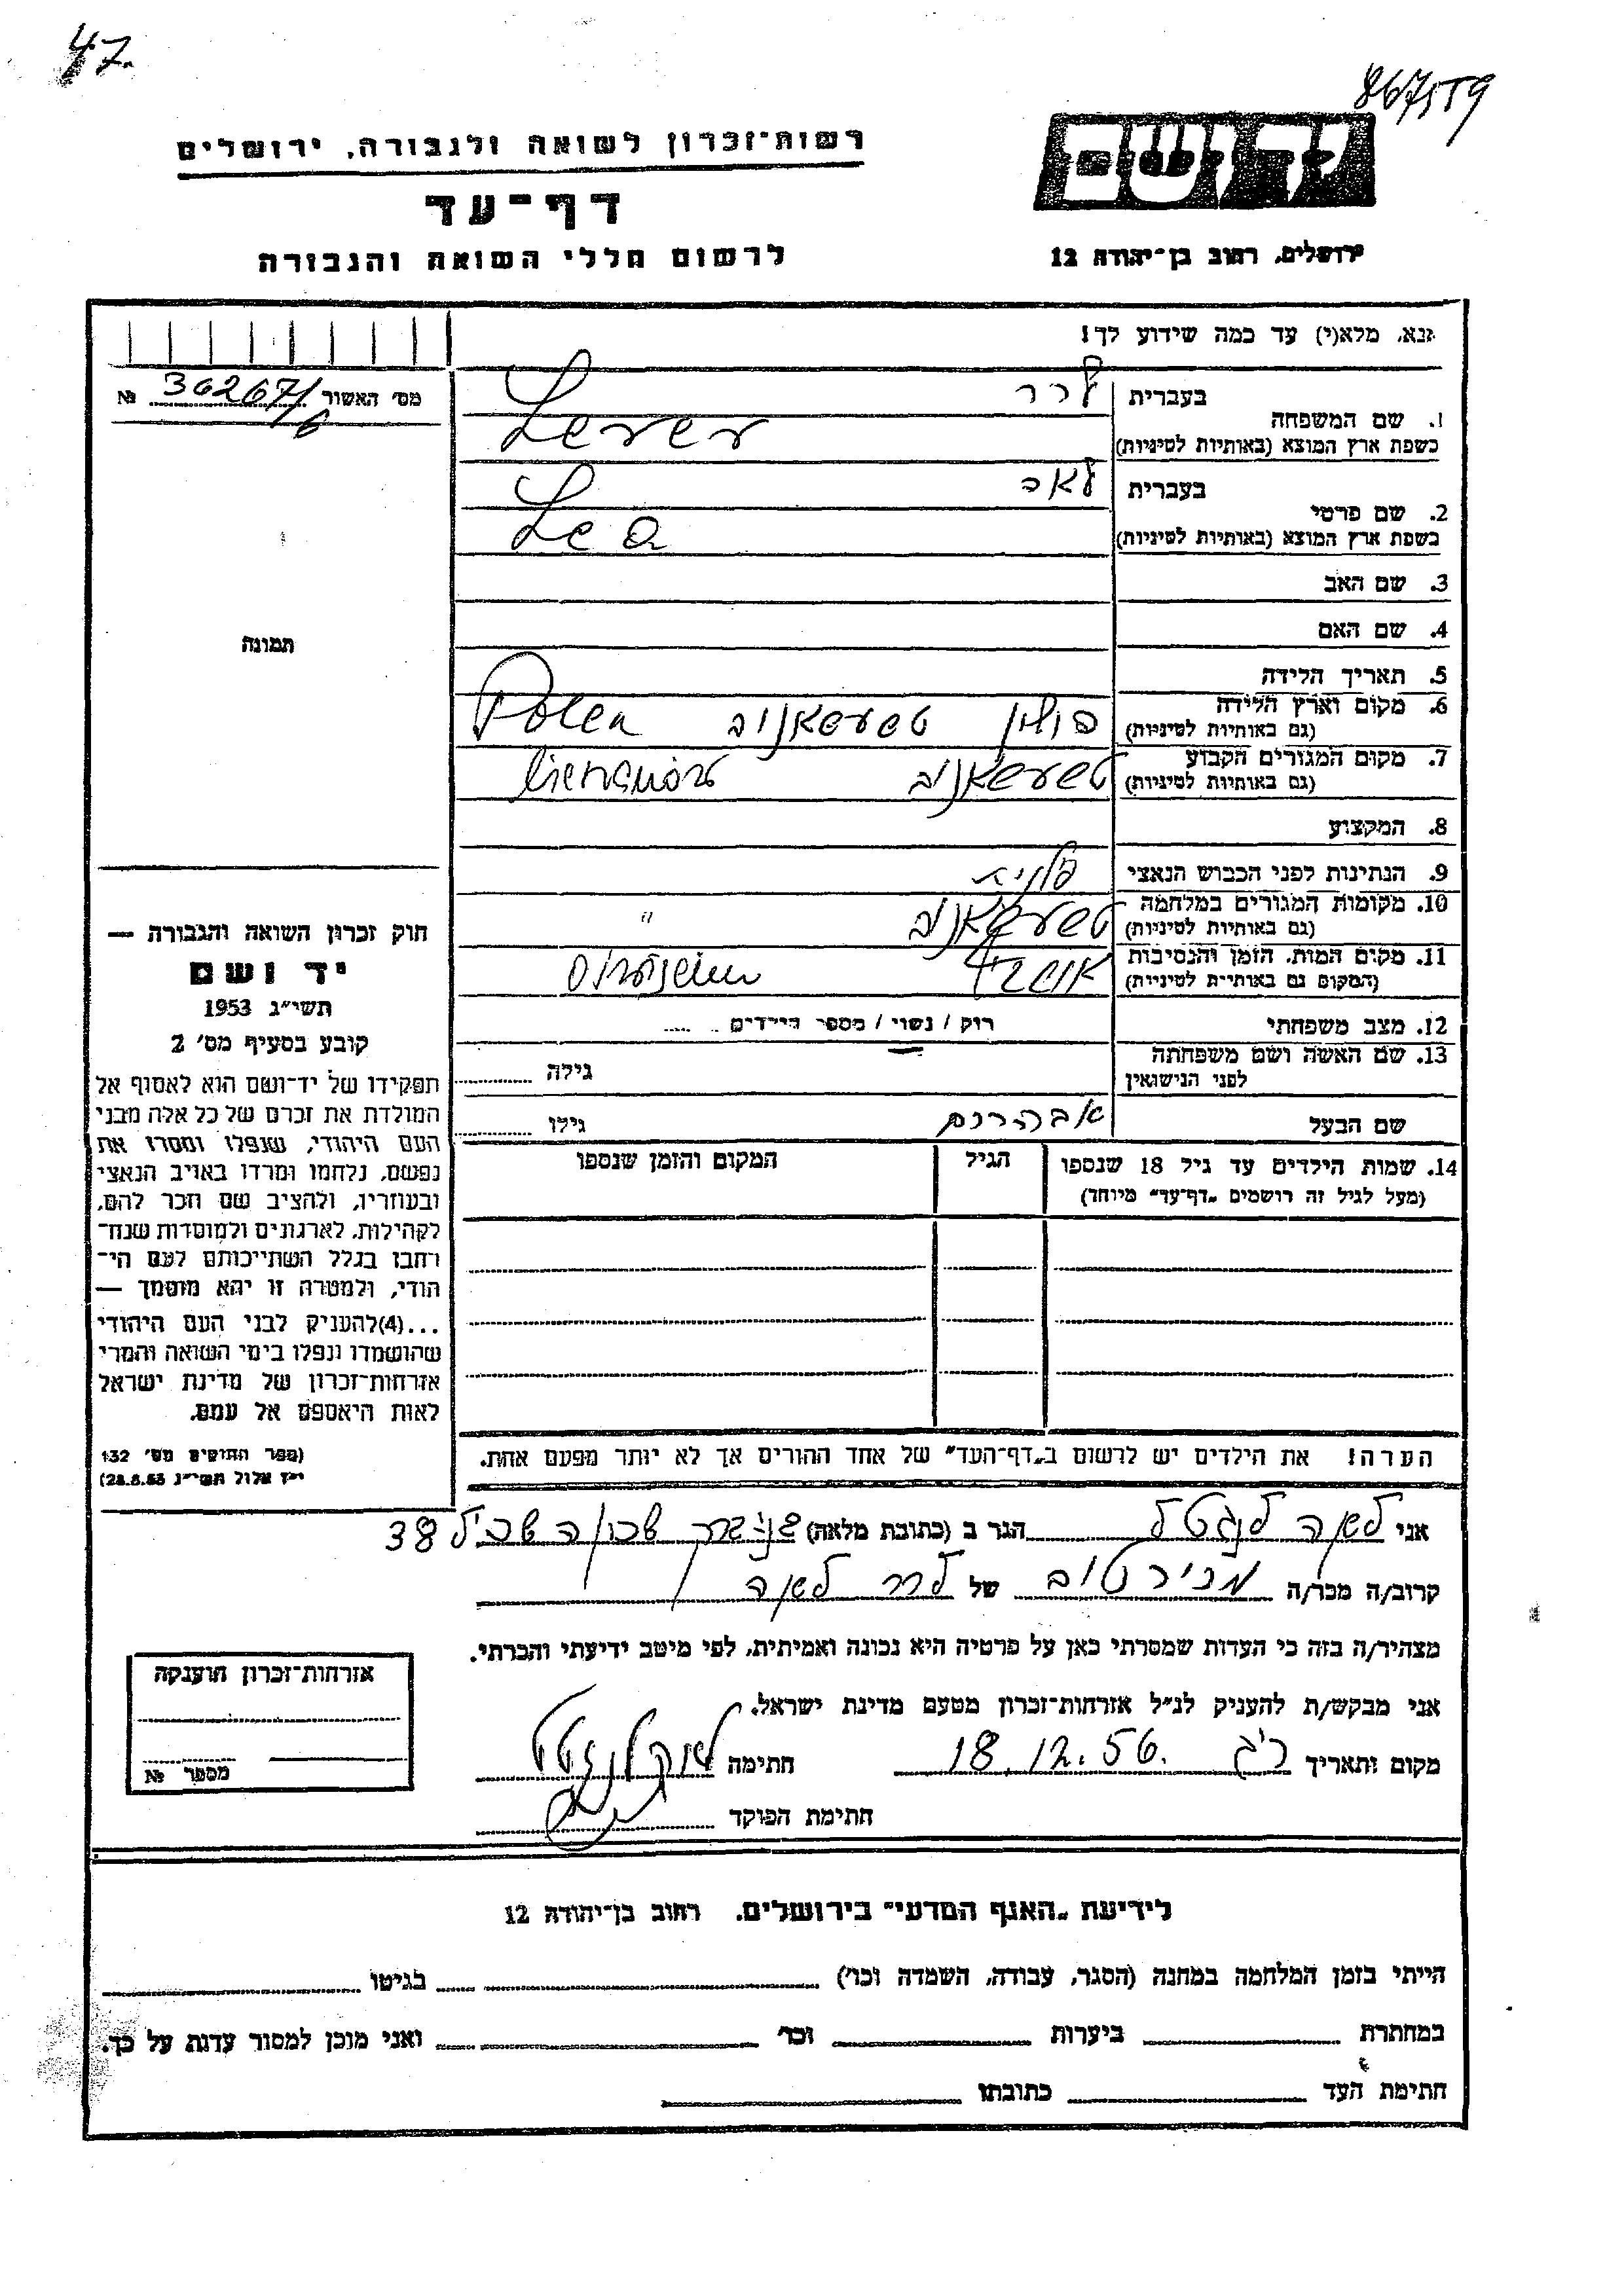 47.
רשות־זכרון לשואה ולגבורה, ירושלים
דף־עד
לרשום חללי השואה והגבורה
ידושם
ירושלים, רחוב בן־יהודה 12
נא, מלא(י) עד כמה שידוע לך!
מס' האשור 36267/6 №
תמונה
1. שם המשפחה
בעברית לרר
בשפת ארץ המוצא (באותיות לטיניות) Lerer
2. שם פרטי
בעברית לאה
בשפת ארץ המוצא (באותיות לטיניות) Lea
3. שם האב
4. שם האם
5. תאריך הלידה
6. מקום וארץ הלידה
(גם באותיות לטיניות) פולין Polen
7. מקום המגורים הקבוע
(גם באותיות לטיניות)
8. המקצוע
9. הנתינות לפני הכבוש הנאצי פולנית
10. מקומות המגורים במלחמה
(גם באותיות לטיניות) "
11. מקום המות, הזמן והנסיבות
(המקום גם באותיות לטיניות)
12. מצב משפחתי רוק / נשוי / מספר הילדים
13. שם האשה ושם משפחתה
לפני הנישואין גילה
שם הבעל אברהם גילו
14. שמות הילדים עד גיל 18 שנספו הגיל המקום והזמן שנספו
(מעל לגיל זה רושמים „דף־עד" מיוחד)
הערה! את הילדים יש לרשום ב„דף־העד" של אחד ההורים אך לא יותר מפעם אחת.
חוק זכרון השואה והגבורה —
יד ושם
תשי"ג 1953
קובע בסעיף מס' 2
תפקידו של יד־ושם הוא לאסוף אל
המולדת את זכרם של כל אלה מבני
העם היהודי, שנפלו ומסרו את
נפשם, נלחמו ומרדו באויב הנאצי
ובעוזריו, ולהציב שם וזכר להם,
לקהילות, לארגונים ולמוסדות שנח־
רבו בגלל השתייכותם לעם הי־
הודי, ולמטרה זו יהא מוסמך —
...(4)להעניק לבני העם היהודי
שהושמדו ונפלו בימי השואה והמרי
אזרחות־זכרון של מדינת ישראל
לאות היאספם אל עמם.
(ספר החוקים מס' 132
י"ז אלול תשי"ג 28.8.53)
אני לאה הגר ב (כתובת מלאה) 38
קרוב/ה מכר/ה מכיר טוב של לרר לאה
מצהיר/ה בזה כי העדות שמסרתי כאן על פרטיה היא נכונה ואמיתית, לפי מיטב ידיעתי והכרתי.
אני מבקש/ת להעניק לנ"ל אזרחות־זכרון מטעם מדינת ישראל.
מקום ותאריך ר"ג 18.12.56. חתימה
חתימת הפוקד
אזרחות־זכרון הוענקה
מספר №
לידיעת „האגף המדעי" בירושלים, רחוב בן־יהודה 12
הייתי בזמן המלחמה במחנה (הסגר, עבודה, השמדה וכו') בגיטו
במחתרת ביערות וכו' ואני מוכן למסור עדות על כך.
חתימת העד כתובתו